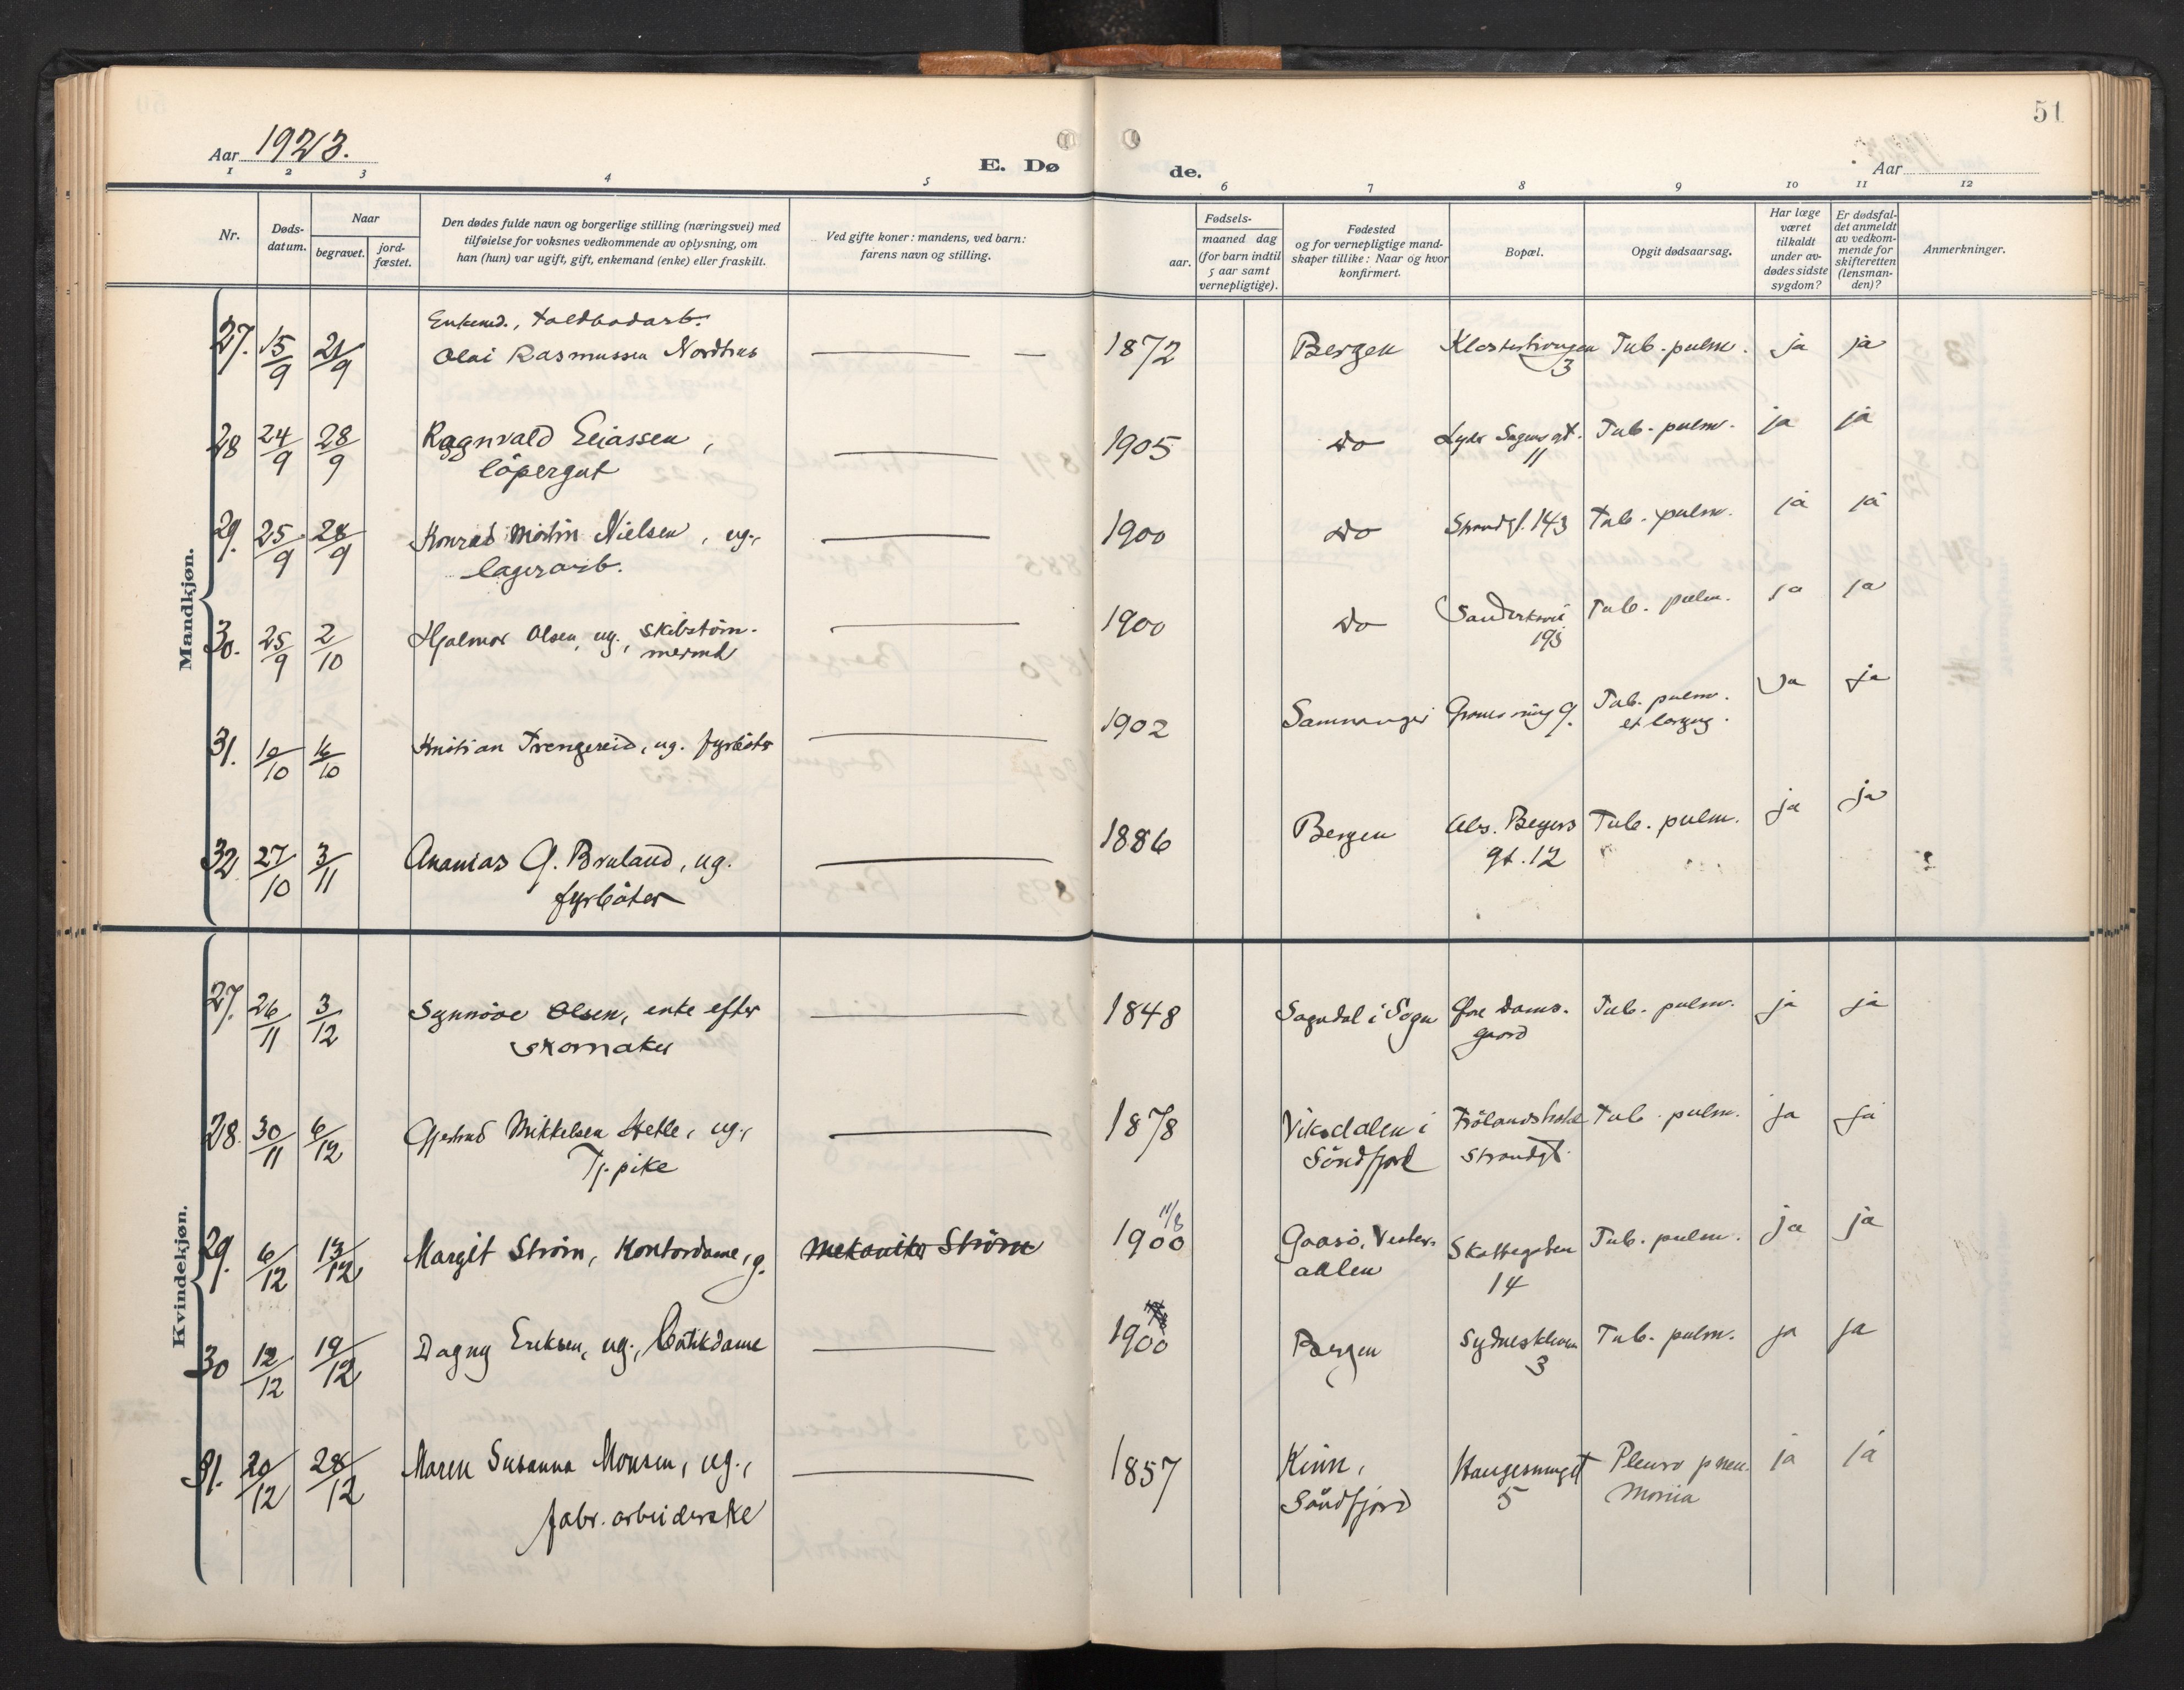 51
Aar 1923.
E. Dø
de.
Aar
1 2 3 4 5 6 7 8 9 10 11 12
Nr.
Døds-
datum.
Naar
begravet.
jord-
fæstet.
Den dødes fulde navn og borgerlige stilling (næringsvei) med
tilføielse for voksnes vedkommende av oplysning, om
han (hun) var ugift, gift, enkemand (enke) eller fraskilt.
Ved gifte koner: mandens, ved barn:
farens navn og stilling.
Fødsels-
aar.
maaned dag
(for barn indtil
5 aar samt
vernepligtige).
Fødested
og for vernepligtige mand-
skaper tillike: Naar og hvor
konfirmert.
Bopæl.
Opgit dødsaarsag.
Har læge
været
tilkaldt
under av-
dødes sidste
sygdom?
Er dødsfal-
det anmeldt
av vedkom-
mende for
skifteretten
(lensman-
den)?
Anmerkninger.
Mandkjøn.
Enkemd., toldbodarb.
27. 15/9 21/9 Olai Rasmussen Nordhus 1872 Bergen Tub. pulm. ja ja
3
28 24/9 28/9 Ragnvald Eliassen, 1905 do Lyder Sagens gt. Tub. pulm. ja ja
löpergut 11
29. 25/9 28/9 Konrad Martin Nielsen, ug., 1900 do Strandgt. 143 Tub. pulm. ja ja
lagerarb.
30. 25/9 2/10 Hjalmar Olsen, ug., skibstöm- 1900 do Tub. pulm. ja ja
mermd 193
31. 10/10 16/10 Kristian Trengereid, ug. fyrböter 1902 Samnanger 9. Tub. pulm. ja ja
et laryng.
32 27/10 3/11 Ananias G. Bruland, ug. 1886 Bergen Abs. Beyers Tub. pulm. ja ja
fyrböter gt. 12
Kvindekjøn.
27. 26/11 3/12 Synnöve Olsen, enke efter 1848 Sogndal i Sogn Övre Dams- Tub. pulm. ja ja
skomaker gaard
28. 30/11 6/12 Gjertrud Mikkelsen Hetle, ug., 1878 Viksdalen i Frölandshotel Tub. pulm. ja ja
Tj. pike Söndfjord Strandgt.
29. 6/12 13/12 Margit Ström, Kontordame, g. mekaniker Ström 11/8 1900 Gaasö, Vester- Skottegaten Tub. pulm. ja ja
aalen 14
30 12/12 19/12 Dagny Eriksen, ug., Butikdame 1900 Bergen Sydneskleven Tub. pulm. ja ja
3
31. 20/12 28/12 Maren Susanna Monsen, ug., 1857 Kinn, Haugesmuget Pleuro pneu- ja ja
fabr. arbeiderske Söndfjord 5 monia